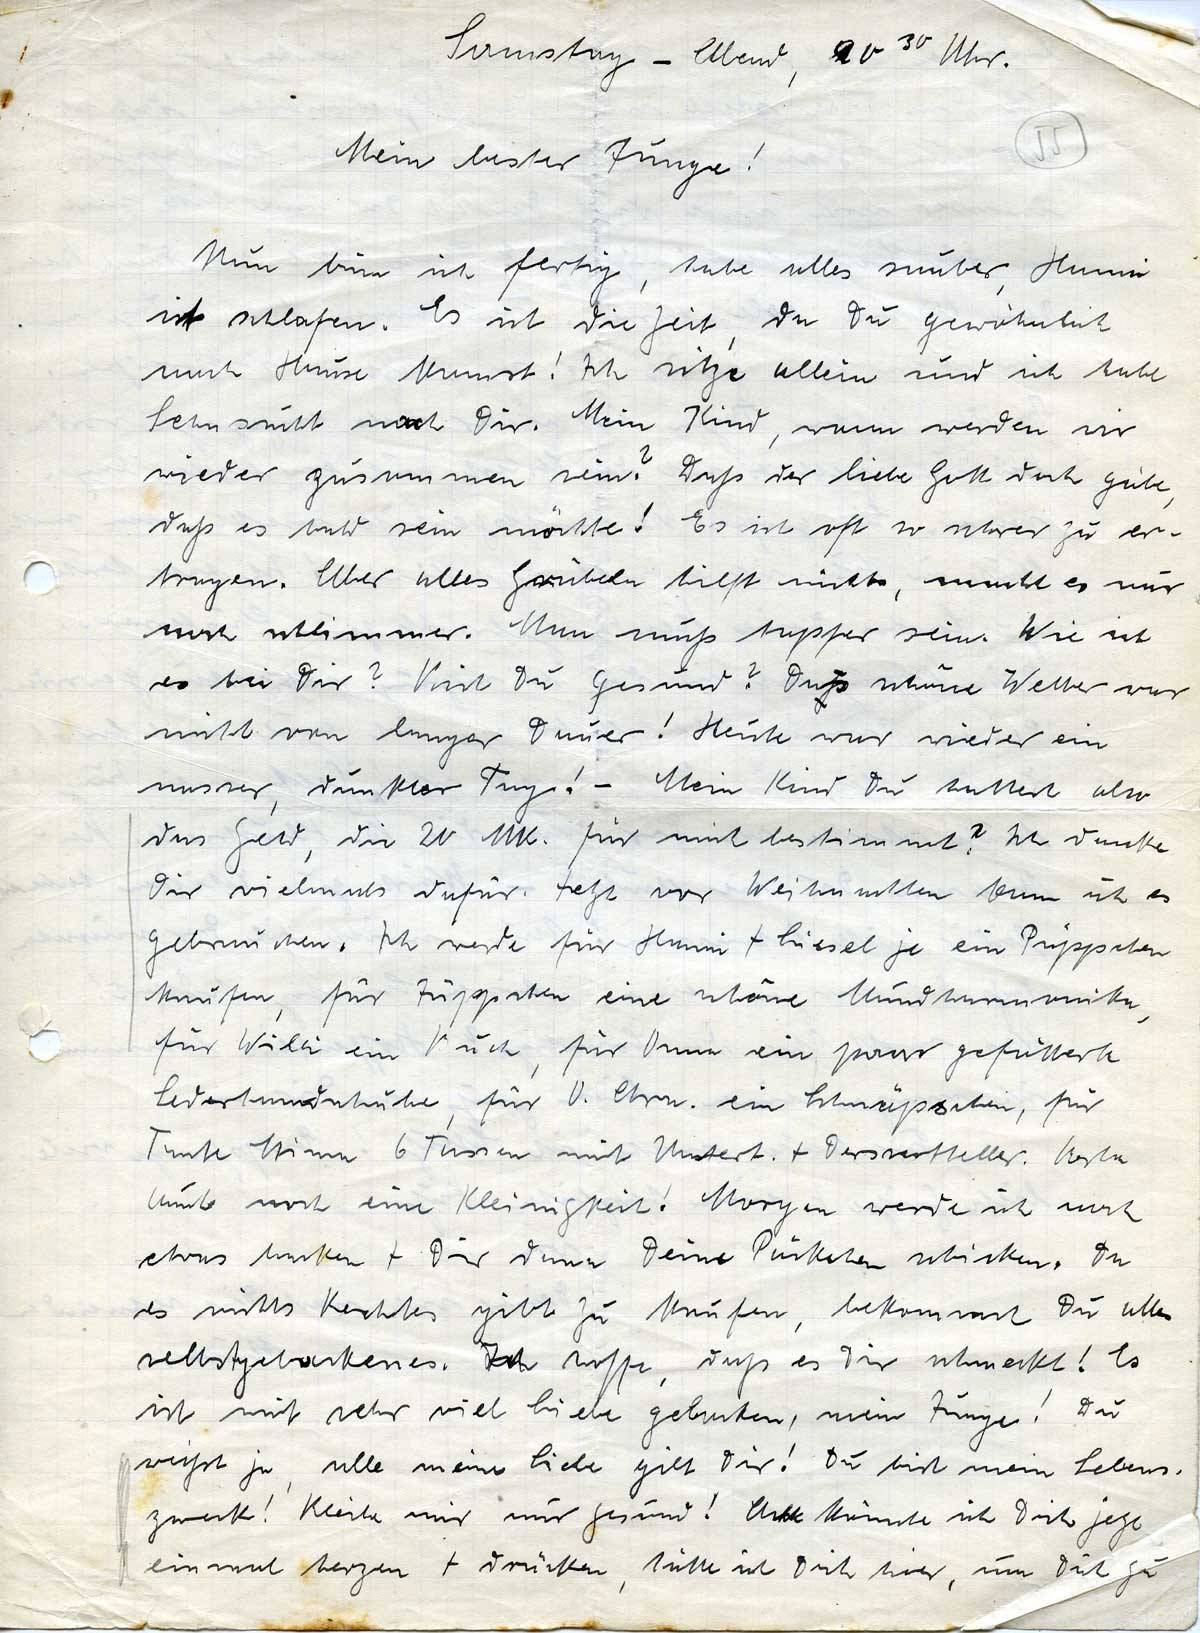 Samstag – Abend, 20 30 Uhr.
II
Mein bester Junge!
Nun bin ich fertig, habe alles sauber, Hanni
ist schlafen. Es ist die Zeit, da Du gewöhnlich
nach Hause kamst! Ich sitze allein und ich habe
Sehnsucht nach Dir. Mein Kind, wann werden wir
wieder zusammen sein? Daß der liebe Gott doch gäbe,
daß es bald sein möchte! Es ist oft so schwer zu er-
tragen. Aber alles Grübeln hilft nichts, macht es nur
noch schlimmer. Man muß tapfer sein. Wie ist
es bei Dir? Bist Du gesund? Das schöne Wetter war
nicht von langer Dauer! Heute war wieder ein
nasser, dunkler Tag! – Mein Kind Du hattest also
das Geld, die 20 Mk. für mich bestimmt? Ich danke
Dir vielmals dafür. Jetzt vor Weihnachten kann ich es
gebrauchen. Ich werde für Hanni + Liesel je ein Püppchen
kaufen, für Jüppchen eine schöne Mundharmonika,
für Willi ein Buch, für Oma ein paar gefütterte
Lederhandschuhe, für O. ein Schnäpschen, für
Tante Minna 6 Tassen mit Untert. + Dessertteller.
noch eine Kleinigkeit! Morgen werde ich noch
etwas backen + Dir dann Deine Päckchen schicken. Da
es nichts Rechtes gibt zu kaufen, bekommst Du alles
selbstgebackenes. Ich hoffe, daß es Dir schmeckt! Es
ist mit sehr viel Liebe gebacken, mein Junge! Du
weißt ja, alle meine Liebe gilt Dir! Du bist mein Lebens-
zweck! Bleibe mir nur gesund! Ach könnte ich Dich jetzt
einmal herzen + drücken, hätte ich Dich hier, um Dich zu